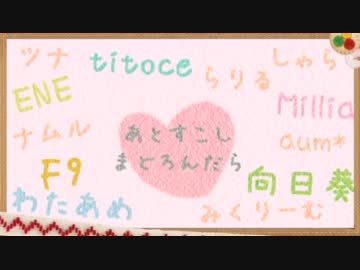 ツナ
titoce
らりる
しゃら
ENE
Millia
ナムル
あとすこし
まどろんだら
aum*
F9
向日葵
わたあめ
みくりーむ